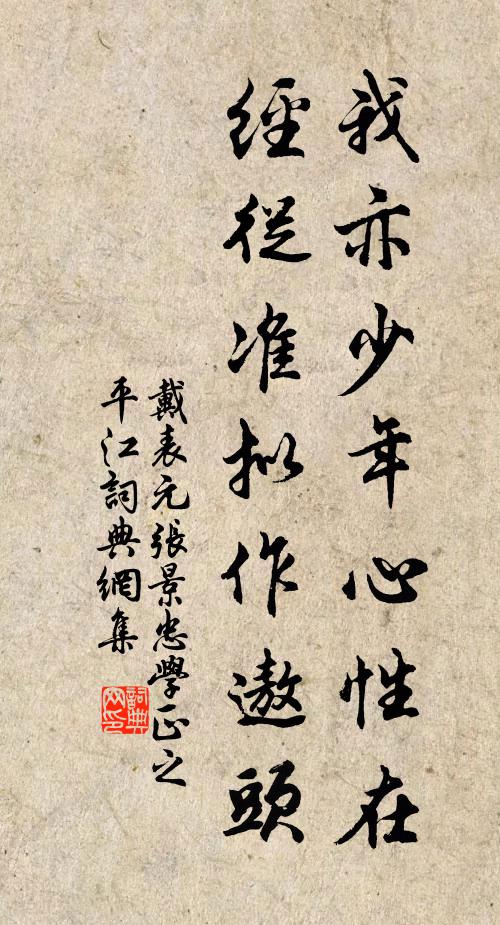 我亦少年心性在
經從准拟作遨頭
戴表元張景忠學正之
平江詞典網集
詞典网印